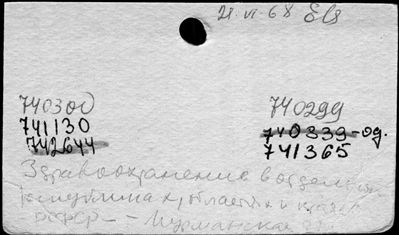 21.VI.68
740300
741130
742644
740299
740339-од.
741365
Здравоохранение в отдельн
республиках, областях и краях
РСФСР - Мурманская